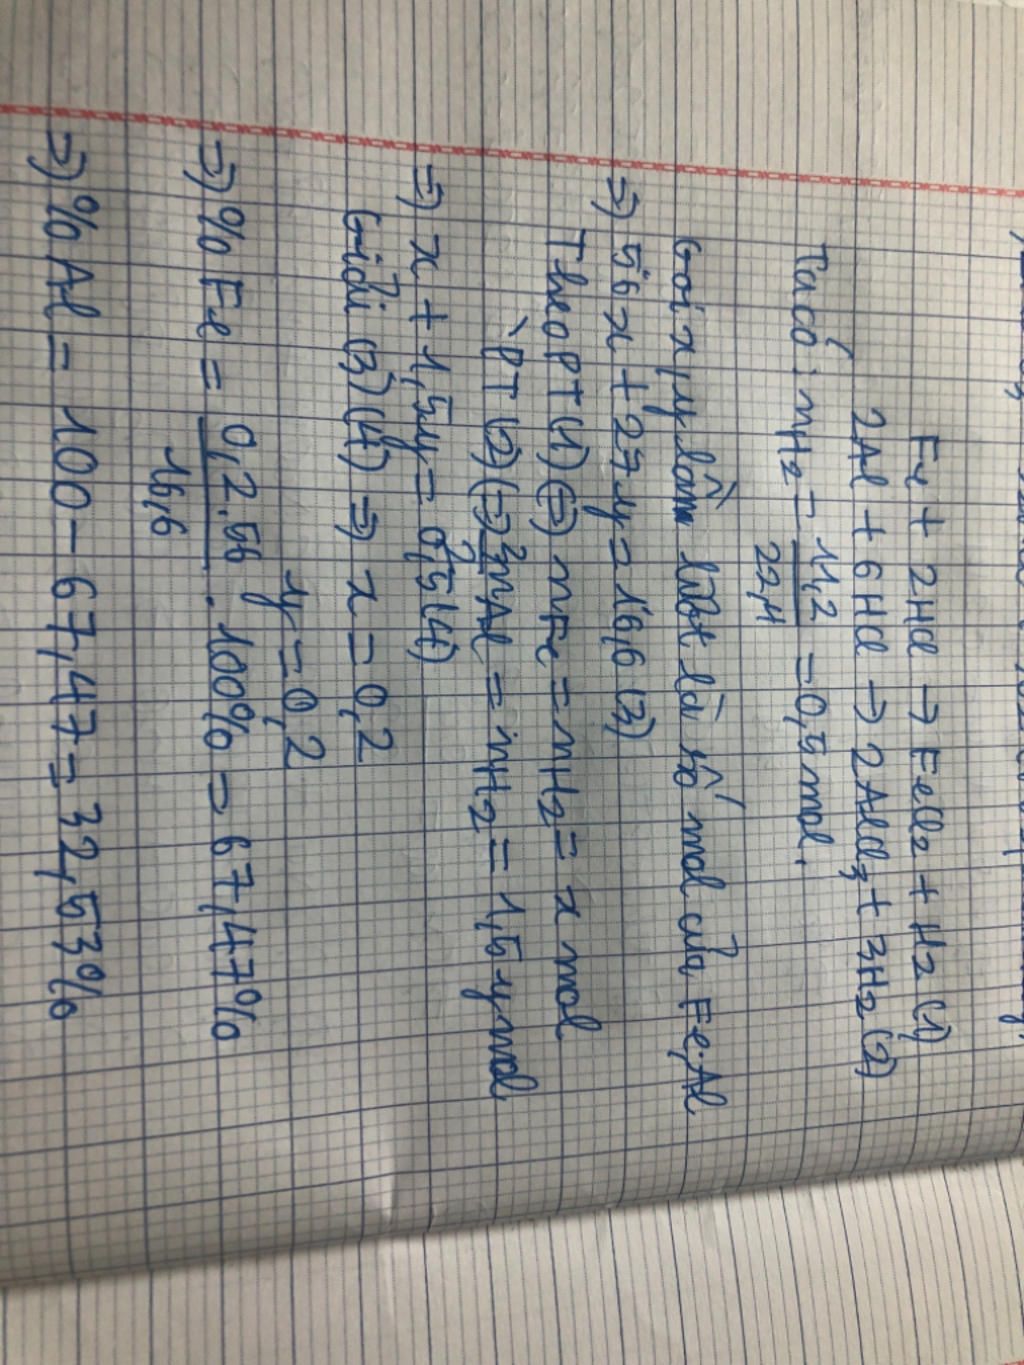 Fe + 2HCl → FeCl2 + H2 (1)
2Al + 6HCl → 2AlCl3 + 3H2 (2)
Ta có: nH2 = 11,2 / 22,4 = 0,5 mol.
Gọi x, y lần lượt là số mol của Fe, Al
=> 56x + 27y = 16,6 (3)
Theo PT (1) (=) nFe = nH2 = x mol
PT (2) (=) 3/2 nAl = nH2 = 1,5y mol
=> x + 1,5y = 0,5 (4)
Giải (3) (4) => x = 0,2
y = 0,2
=> % Fe = 0,2.56 / 16,6 . 100% = 67,47%
=> % Al = 100 - 67,47 = 32,53%